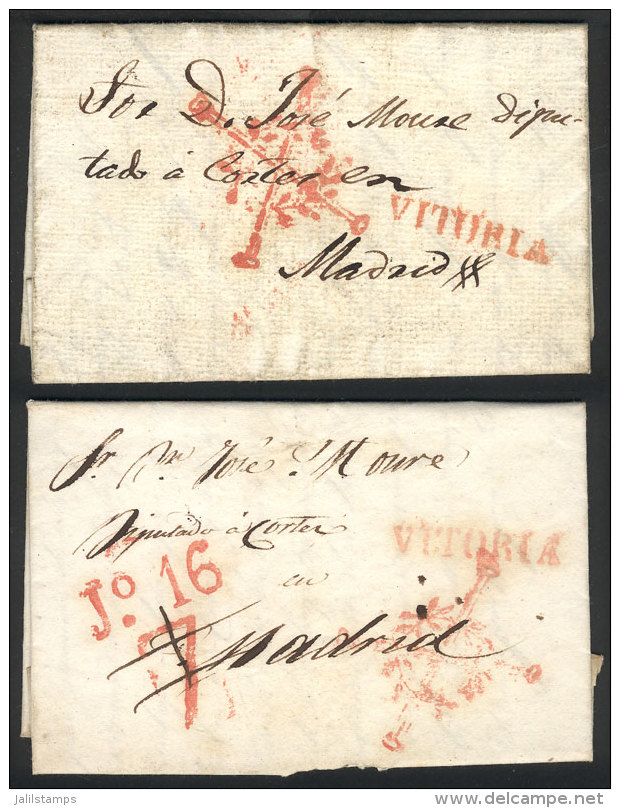 Sor D. José Moure Dipu-
tado à Cortes en
VITORIA
Madrid
Sr. Dn. José Moure
Diputado à Cortes
VITORIA
Jo. 16
en
Madrid
jalilstamps
www.delcampe.net